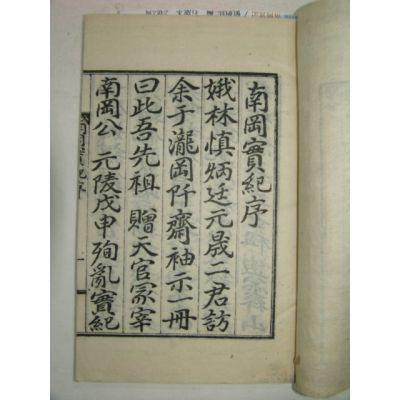 南岡實紀序
娥林愼炳廷元晟二君訪
余于瀧岡阡齋袖示一冊
曰此吾先祖 贈天官冢宰
南岡公 元陵戊申殉亂實紀
南岡實紀序